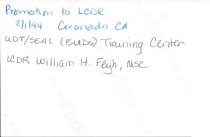 Promotion to LCDR
2/1/94 Coronado CA
UDT/SEAL (BUDs) Training Center
LCDR William H. Fligh, MSC